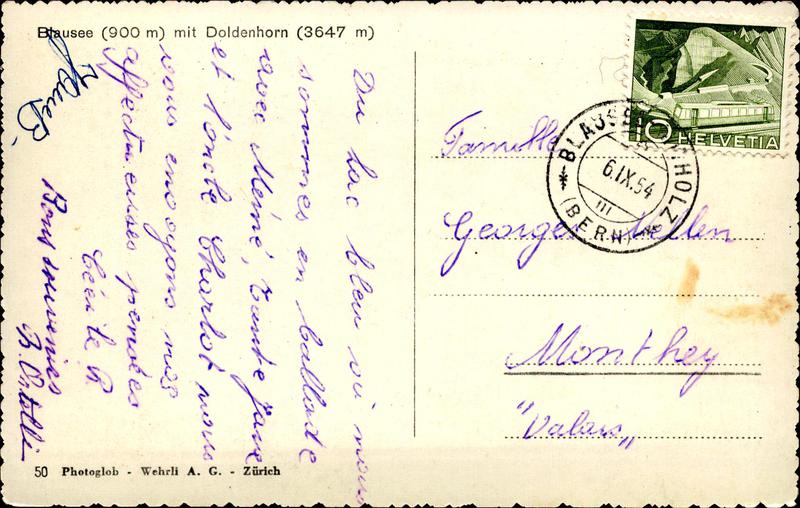 Blausee (900 m) mit Doldenhorn (3647 m)
Du lac bleu où nous
sommes en ballade
avec Mémé, tante Jane
et l'oncle Charlot nous
vous envoyons nos
affectueuses pensées
Cécile R
Bons souvenirs
Famille
Georges Mellen
Monthey
"Valais"
10 HELVETIA
BLAUSE HOLZ
6.IX.54
(BERN)
50 Photoglob - Wehrli A. G. - Zürich